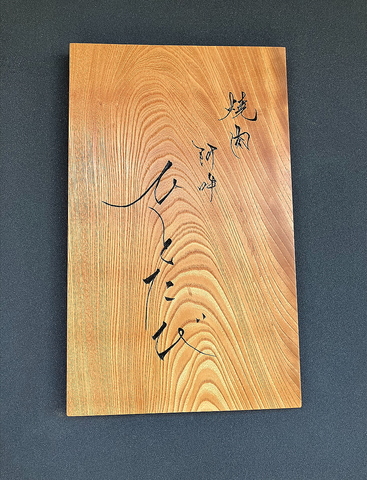 焼肉
阿吽
ひとたび